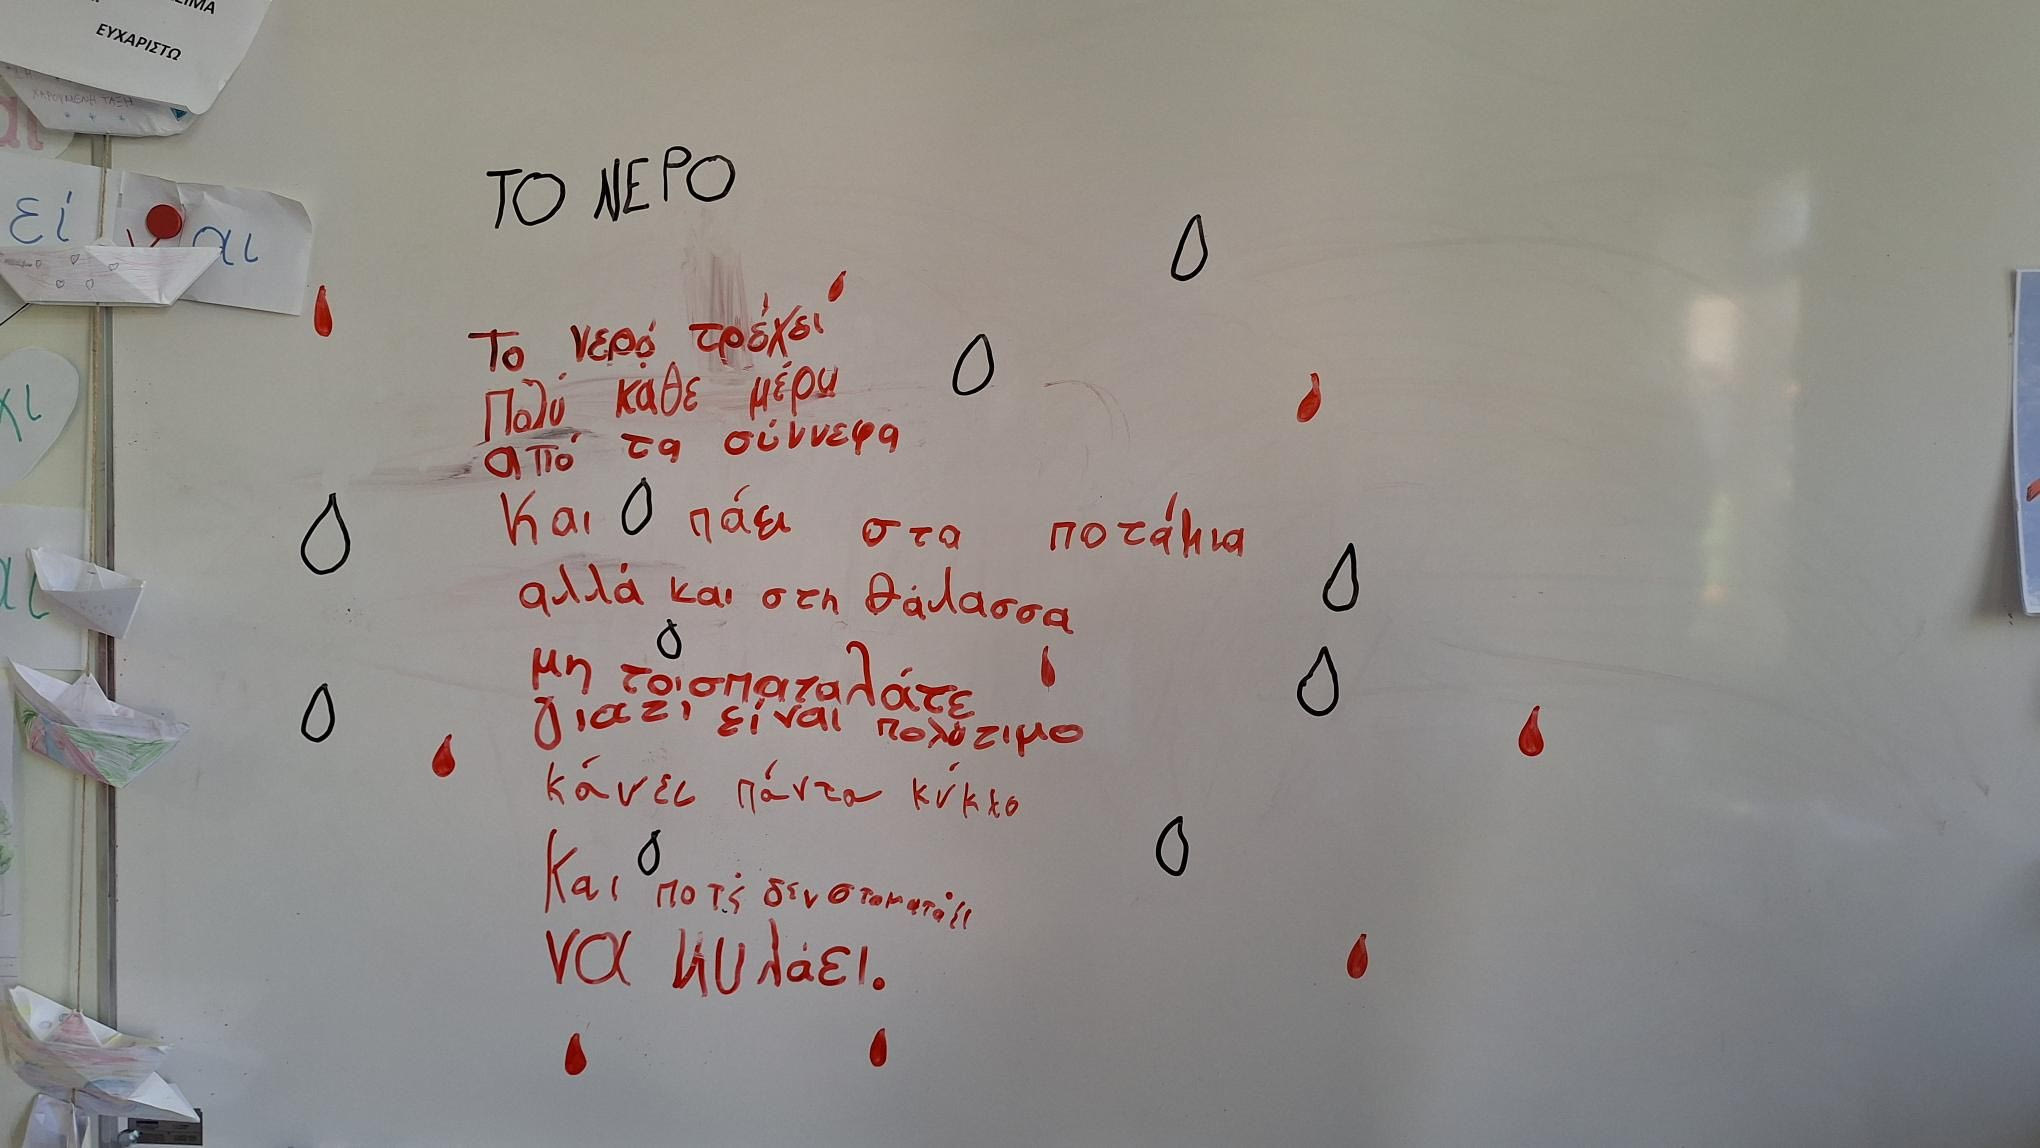 ΕΥΧΑΡΙΣΤΩ
ΧΑΡΟΥΜΕΝΗ ΤΑΞΗ
εί ναι
ΤΟ ΝΕΡΟ
Το νερό τρέχει
Πολύ κάθε μέρα
από τα σύννεφα
Και πάει στα ποτάμια
αλλά και στη θάλασσα
μη τοισπαταλάτε
γιατί είναι πολύτιμο
κάνει πάντα κύκλο
Και ποτέ δεν σταματάει
να κυλάει.